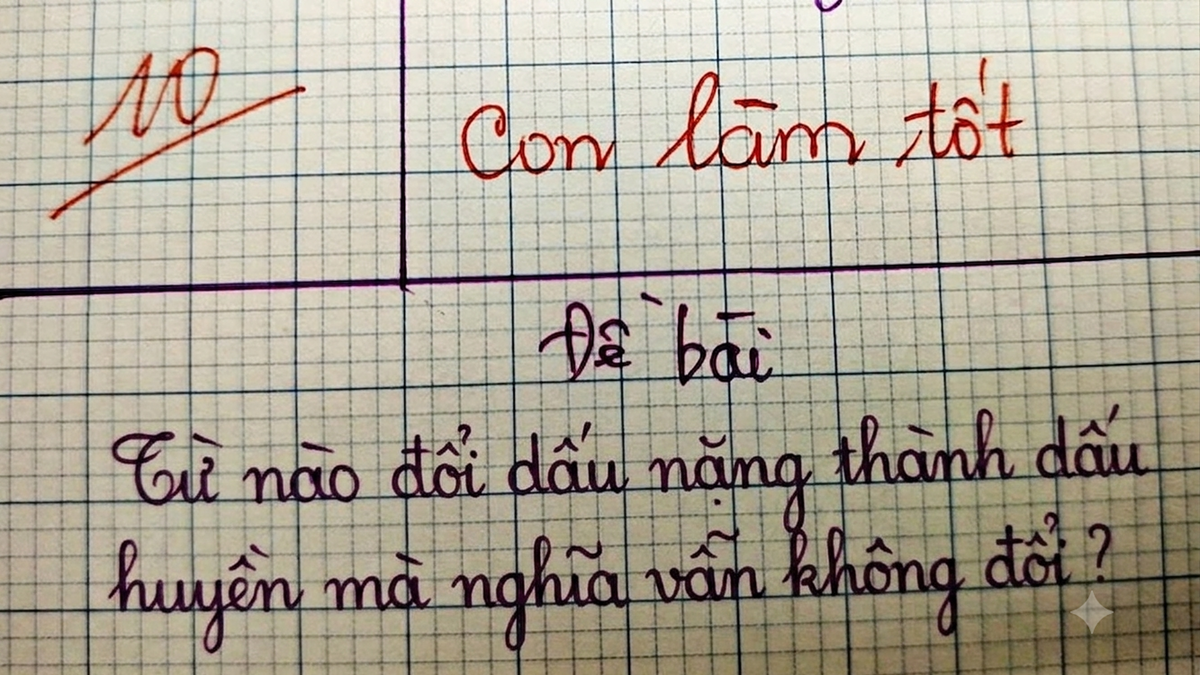 10
Con làm tốt
Đề bài
Từ nào đổi dấu nặng thành dấu
huyền mà nghĩa vẫn không đổi?